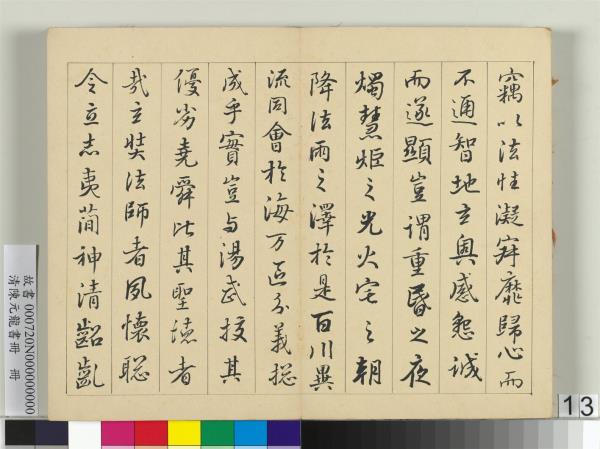 竊以法性凝寂靡歸心而
不通智地玄奧感懇誠
而遂顯豈謂重昏之夜
燭慧炬之光火宅之朝
降法雨之澤於是百川異
流同會於海万區分義揔
成乎實豈与湯武挍其
優劣堯舜比其聖德者
哉玄奘法師者夙懷聡
令立志夷簡神清齠齓
故書 000720N000000000
清陳元龍書冊 冊
13